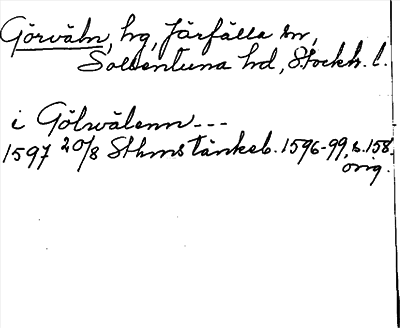 Görväln, hg, Järfälla sn,
Sollentuna hd, Stockh. l.
i Gölwälenn---
1597 20/8 Sthms tänkeb. 1596-99, s. 158.
orig.